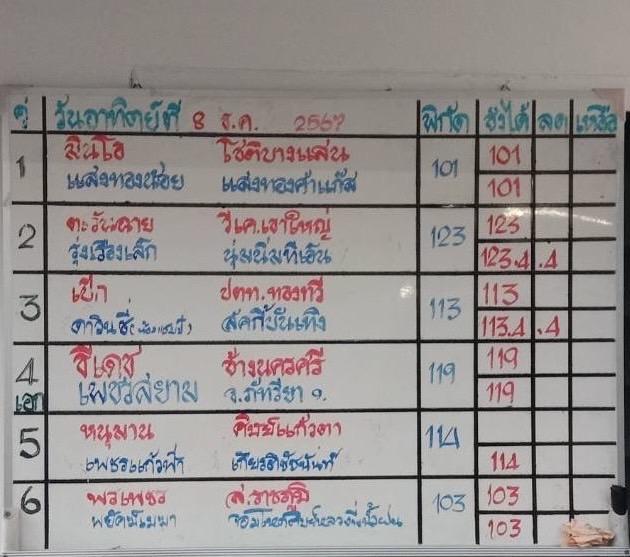 คู่ วันอาทิตย์ที่ 8 ธ.ค. 2567 พิกัด ชั่งได้ ลด เหลือ
1 สินโอ โชติบางแสน 101 101
แสงทองน้อย แสงทองคำแก๊ส 101
2 ตะวันฉาย วีเค.เขาใหญ่ 123 123
รุ่งเรืองเล็ก นุ่มนิ่มทีเอ็น 123.4 .4
3 เป๊ก ปตท.ทองทวี 113 113
ดาวินชี่ สักกี้บันเทิง 113.4 .4
4 ช้างนครศรี 119 119
เอก เพชรสยาม จ.ภัทรียา 119
5 หนุมาน ศิษย์แก้วตา 114
เพชรแก้วฟ้า เกียรติชัชนันท์ 114
6 พรเพชร ส.ราชภูมิ 103 103
103